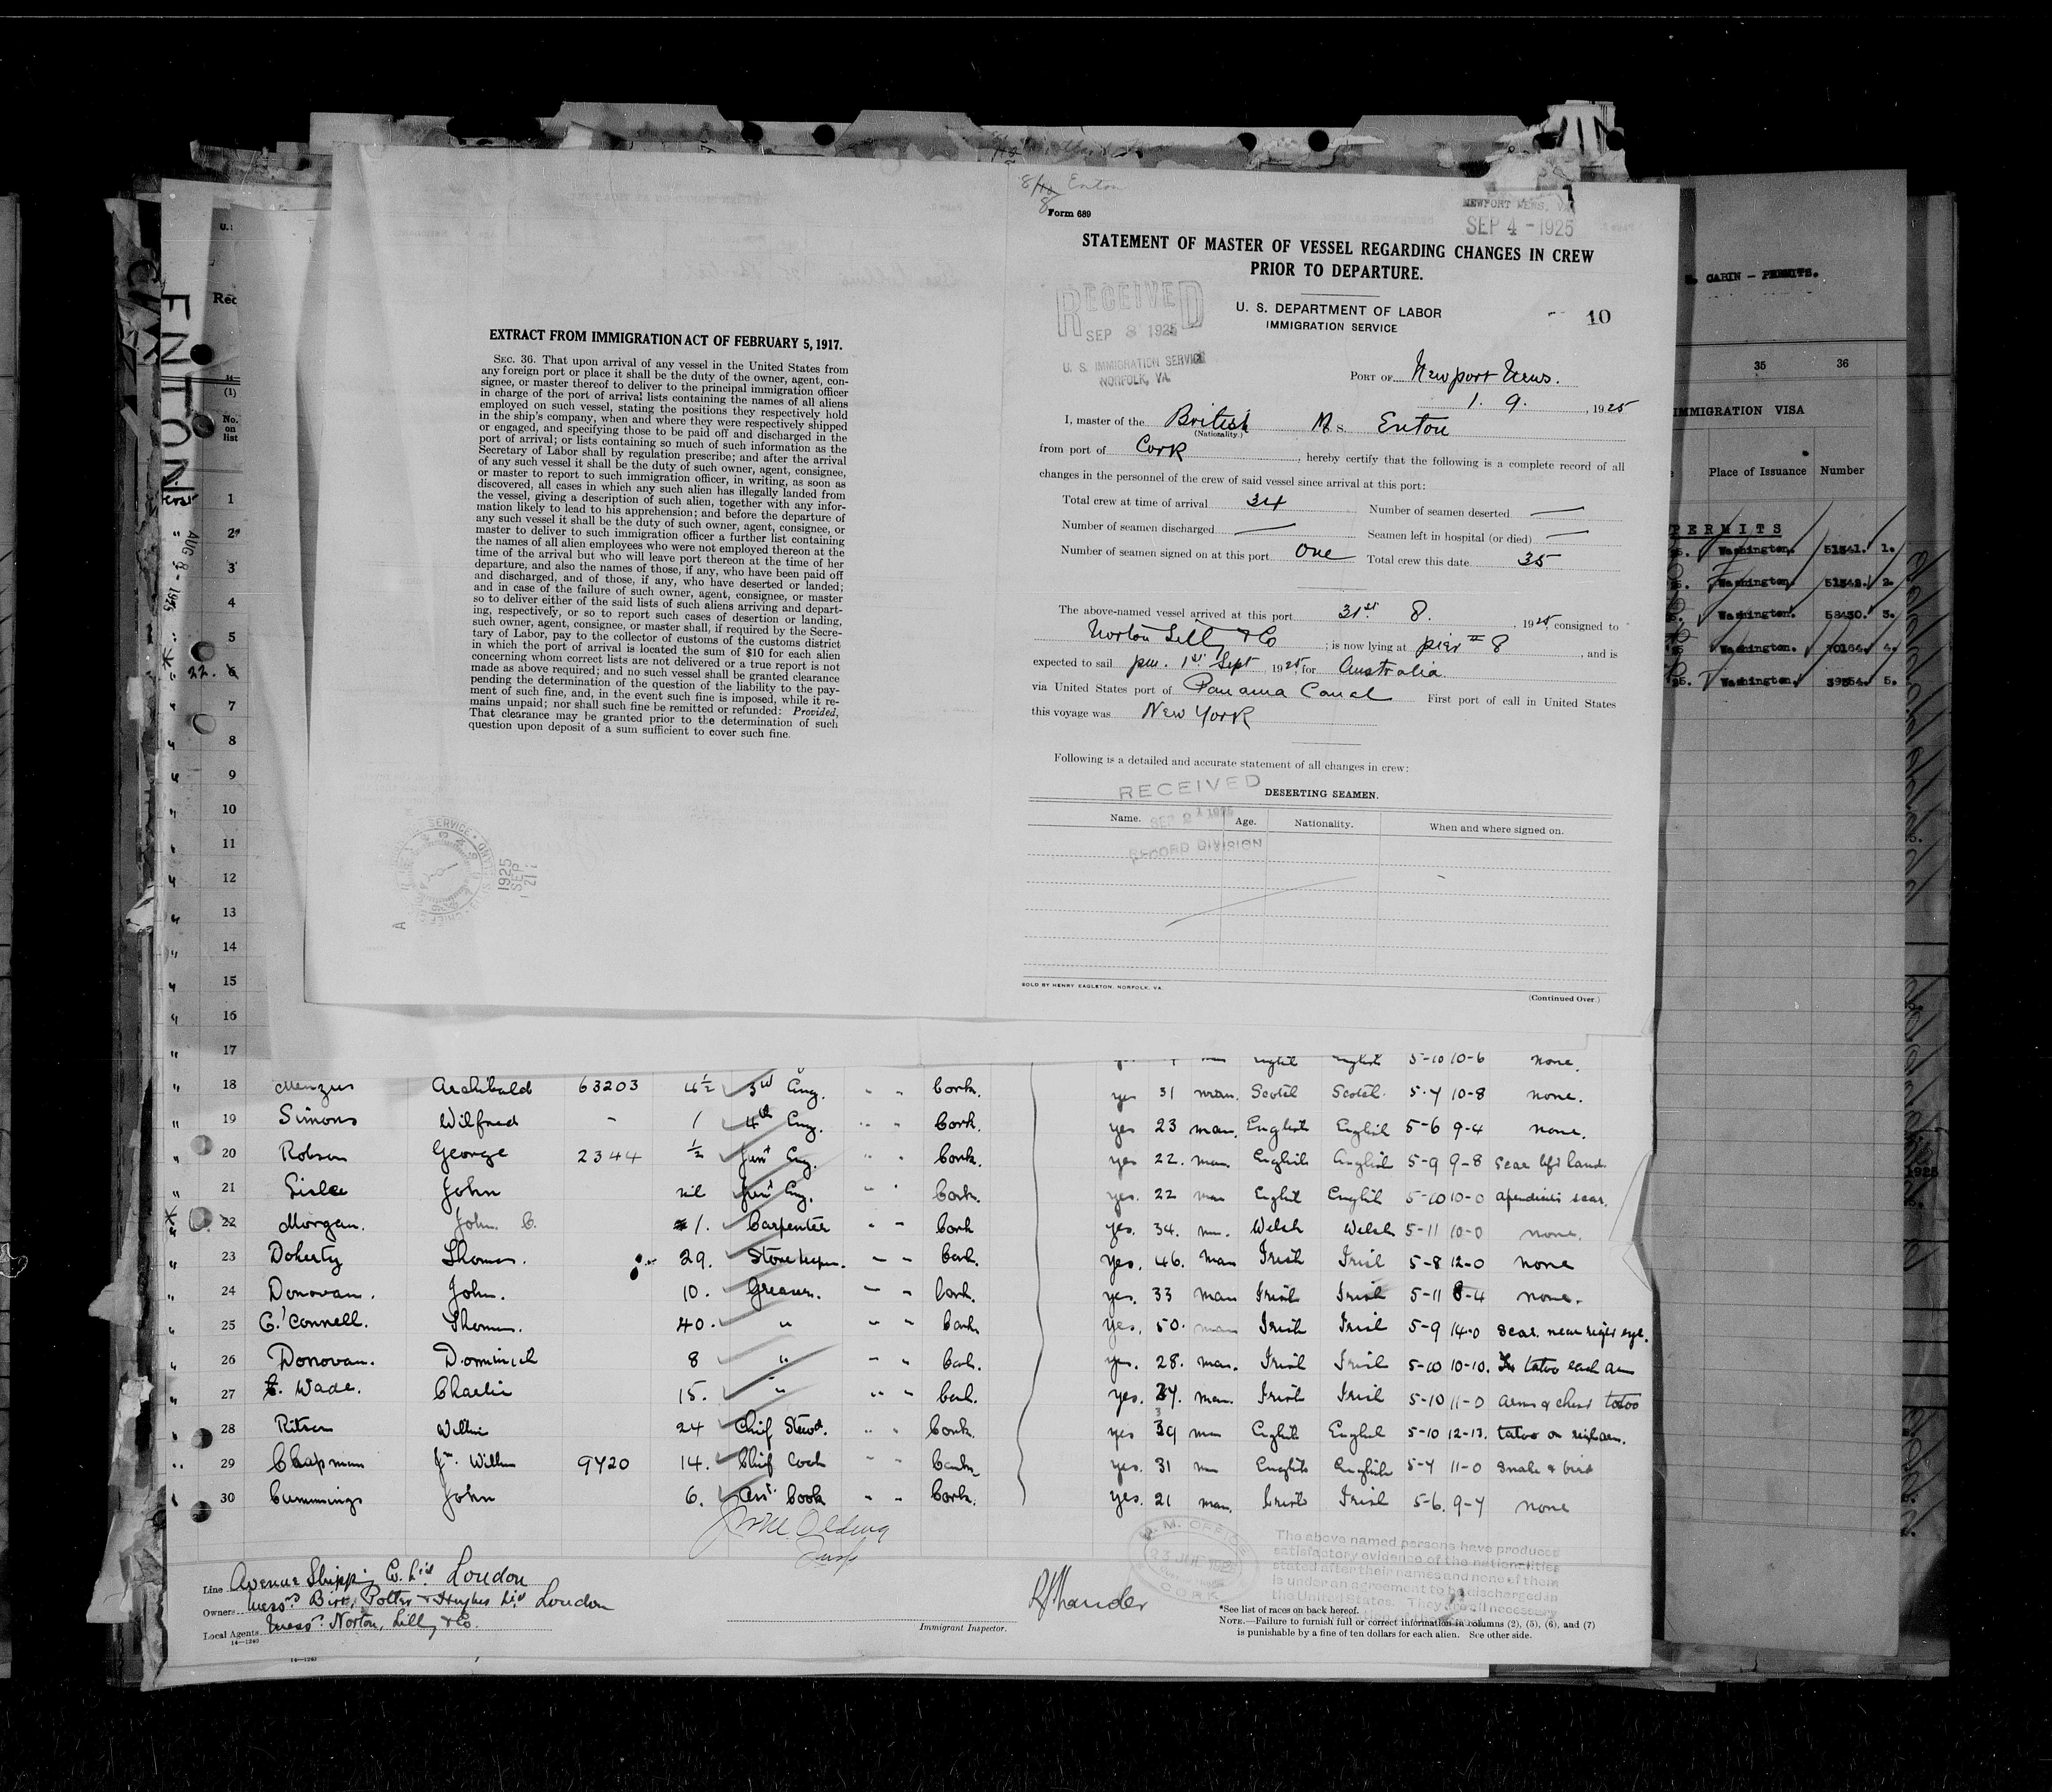 ENTON
8/18 Enton
8
Form 689
NEWPORT NEWS, VA.
SEP 4 - 1925
STATEMENT OF MASTER OF VESSEL REGARDING CHANGES IN CREW
PRIOR TO DEPARTURE.
U. S. DEPARTMENT OF LABOR
IMMIGRATION SERVICE
10
RECEIVED
SEP 3 1925
U. S. IMMIGRATION SERVICE
NORFOLK, VA.
PORT OF Newport News.
1. 9. , 1925
I, master of the British M. S. Enton
(Nationality.)
from port of Cork, hereby certify that the following is a complete record of all
changes in the personnel of the crew of said vessel since arrival at this port:
Total crew at time of arrival 34 Number of seamen deserted —
Number of seamen discharged — Seamen left in hospital (or died) —
Number of seamen signed on at this port One Total crew this date 35
The above-named vessel arrived at this port 31st 8. , 1925, consigned to
Norton Lilly & Co ; is now lying at pier # 8 , and is
expected to sail pm. 1st Sept 1925, for Australia.
via United States port of Panama Canal First port of call in United States
this voyage was New York
Following is a detailed and accurate statement of all changes in crew:
RECEIVED
SEP 21 1925
RECORD DIVISION
DESERTING SEAMEN.
Name. Age. Nationality. When and where signed on.
SOLD BY HENRY EAGLETON, NORFOLK, VA.
(Continued Over.)
EXTRACT FROM IMMIGRATION ACT OF FEBRUARY 5, 1917.
SEC. 36. That upon arrival of any vessel in the United States from
any foreign port or place it shall be the duty of the owner, agent, con-
signee, or master thereof to deliver to the principal immigration officer
in charge of the port of arrival lists containing the names of all aliens
employed on such vessel, stating the positions they respectively hold
in the ship's company, when and where they were respectively shipped
or engaged, and specifying those to be paid off and discharged in the
port of arrival; or lists containing so much of such information as the
Secretary of Labor shall by regulation prescribe; and after the arrival
of any such vessel it shall be the duty of such owner, agent, consignee,
or master to report to such immigration officer, in writing, as soon as
discovered, all cases in which any such alien has illegally landed from
the vessel, giving a description of such alien, together with any infor-
mation likely to lead to his apprehension; and before the departure of
any such vessel it shall be the duty of such owner, agent, consignee, or
master to deliver to such immigration officer a further list containing
the names of all alien employees who were not employed thereon at the
time of the arrival but who will leave port thereon at the time of her
departure, and also the names of those, if any, who have been paid off
and discharged, and of those, if any, who have deserted or landed;
and in case of the failure of such owner, agent, consignee, or master
so to deliver either of the said lists of such aliens arriving and depart-
ing, respectively, or so to report such cases of desertion or landing,
such owner, agent, consignee, or master shall, if required by the Secre-
tary of Labor, pay to the collector of customs of the customs district
in which the port of arrival is located the sum of $10 for each alien
concerning whom correct lists are not delivered or a true report is not
made as above required; and no such vessel shall be granted clearance
pending the determination of the question of the liability to the pay-
ment of such fine, and, in the event such fine is imposed, while it re-
mains unpaid; nor shall such fine be remitted or refunded: Provided,
That clearance may be granted prior to the determination of such
question upon deposit of a sum sufficient to cover such fine.
1925
SEP
21
CABIN – PERMITS.
35 36
IMMIGRATION VISA
Place of Issuance Number
PERMITS
Washington. 51541. 1.
Washington. 51542. 2.
Washington. 58430. 3.
Washington. 4.
Washington. 39554. 5.
(1)
No.
on
list
AUG 1925
1
2
3
4
5
22. 6
7
8
9
10
11
12
13
14
15
16
17 5-10 10-6 none.
18 Menzies Archibald 63203 4½ 3rd Eng. " " Cork. yes 31 man. Scotch Scotch. 5-7 10-8 none.
19 Simons Wilfred - 1 4th Eng. " " Cork. yes 23 man. English English 5-6 9-4 none.
20 Robson George 2344 ½ Junr Eng. " " Cork. yes 22. man English English 5-9 9-8 Scar left hand.
21 John nil Junr Eng. " " Cork. yes. 22 man English English 5-10 10-0 apendicitis scar.
22 Morgan. John. C. 1. Carpenter " " Cork yes. 34. man. Welsh Welsh 5-11 10-0 none.
23 Doherty Thomas. 29. Storekeeper. " " Cork. yes. 46. man Irish Irish 5-8 12-0 none
24 Donovan. John. 10. Greaser. " " Cork. yes. 33 man Irish Irish 5-11 8-4 none.
25 O'Connell. Thomas. 40. " " " Cork yes. 50. man Irish Irish 5-9 14-0 Scar. near right eye.
26 Donovan. Dominick 8 " " " Cork. yes. 28. man. Irish Irish 5-10 10-10. tatoo each arm
27 Wade. Charlie 15. " " " Cork. yes. 37. man. Irish Irish 5-10 11-0 arms & chest tatoo
28 Ritson Willie 24 Chief Stewd. " " Cork. yes 39 man English English 5-10 12-13. tatoo on right arm.
29 Chapman Jn. Willm 9720 14. Chief Cook " " Cork yes. 31 man English English 5-7 11-0 Snake & bird
30 Cummings John 6. Asst. Cook " " Cork. yes. 21 man. Irish Irish 5-6. 9-7 none
Line Avenue Shipping Co. Ltd London
Owners Messrs Birt, Potter & Hughes Ltd London
Local Agents Messrs. Norton, Lilly & Co.
14—1240
Immigrant Inspector.
CORK
The above named persons have produced
satisfactory evidence of the nationalities
stated after their names and none of them
is under an agreement to be discharged in
the United States. They are all necessary
*See list of races on back hereof.
NOTE.—Failure to furnish full or correct information in columns (2), (5), (6), and (7)
is punishable by a fine of ten dollars for each alien. See other side.